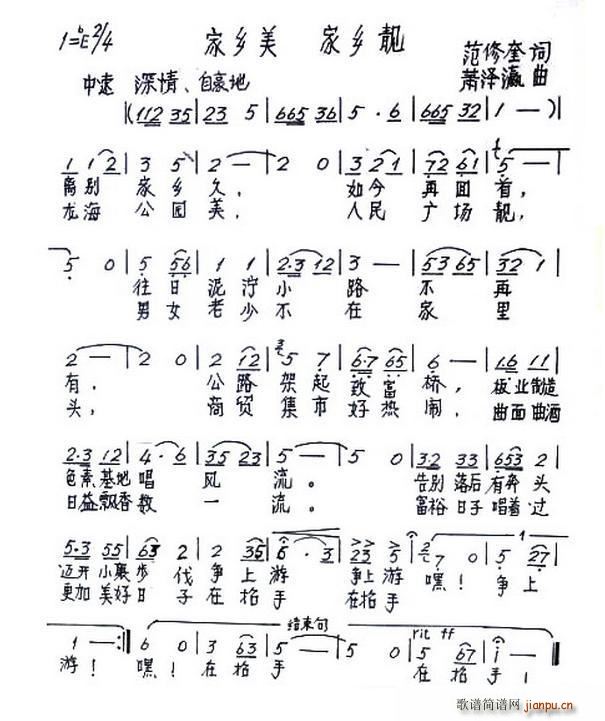 1=♭E 2/4 家乡美 家乡靓 范修奎 词
中速 深情、自豪地 萧泽瀛 曲
(112 35 | 23 5 | 665 36 | 5 · 6 | 665 32 | 1 — )
1 1 2 | 3 5 | 2 — | 2 0 | 3 2 1 | 72 61 | 5 — |
离别 家乡久, 如今 再回首,
龙海 公园美, 人民 广场靓,
5 0 | 5 56 | 1 1 | 2·3 12 | 3 — | 53 65 | 32 1 |
往日泥泞小路不再
男女老少不在家里
2 — | 2 0 | 2 12 | 5 7 | 6·7 65 | 6 — | 16 11 |
有, 公路架起致富桥, 板业
头, 商贸集市好热闹, 曲面曲酒
2·3 12 | 4 · 6 | 35 23 | 5 — | 5 0 | 3·2 33 | 653 3 |
色素基地唱风流。 告别落后有奔头
日益飘香数一流。 富裕日子唱着过
5·3 55 | 63 2 | 2 35 | 6 · 3 | 23 5 | 7 0 | 5 27 |
迈开小襄步伐争上游 争上游 嘿!争上
更加美好日子在招手 在招手
结束句 rit ff
1 — :| 6 0 | 3 63 | 5 — | 5 0 | 5 67 | i — |
游! 嘿!在招手 在招手!
歌谱简谱网
jianpu.cn